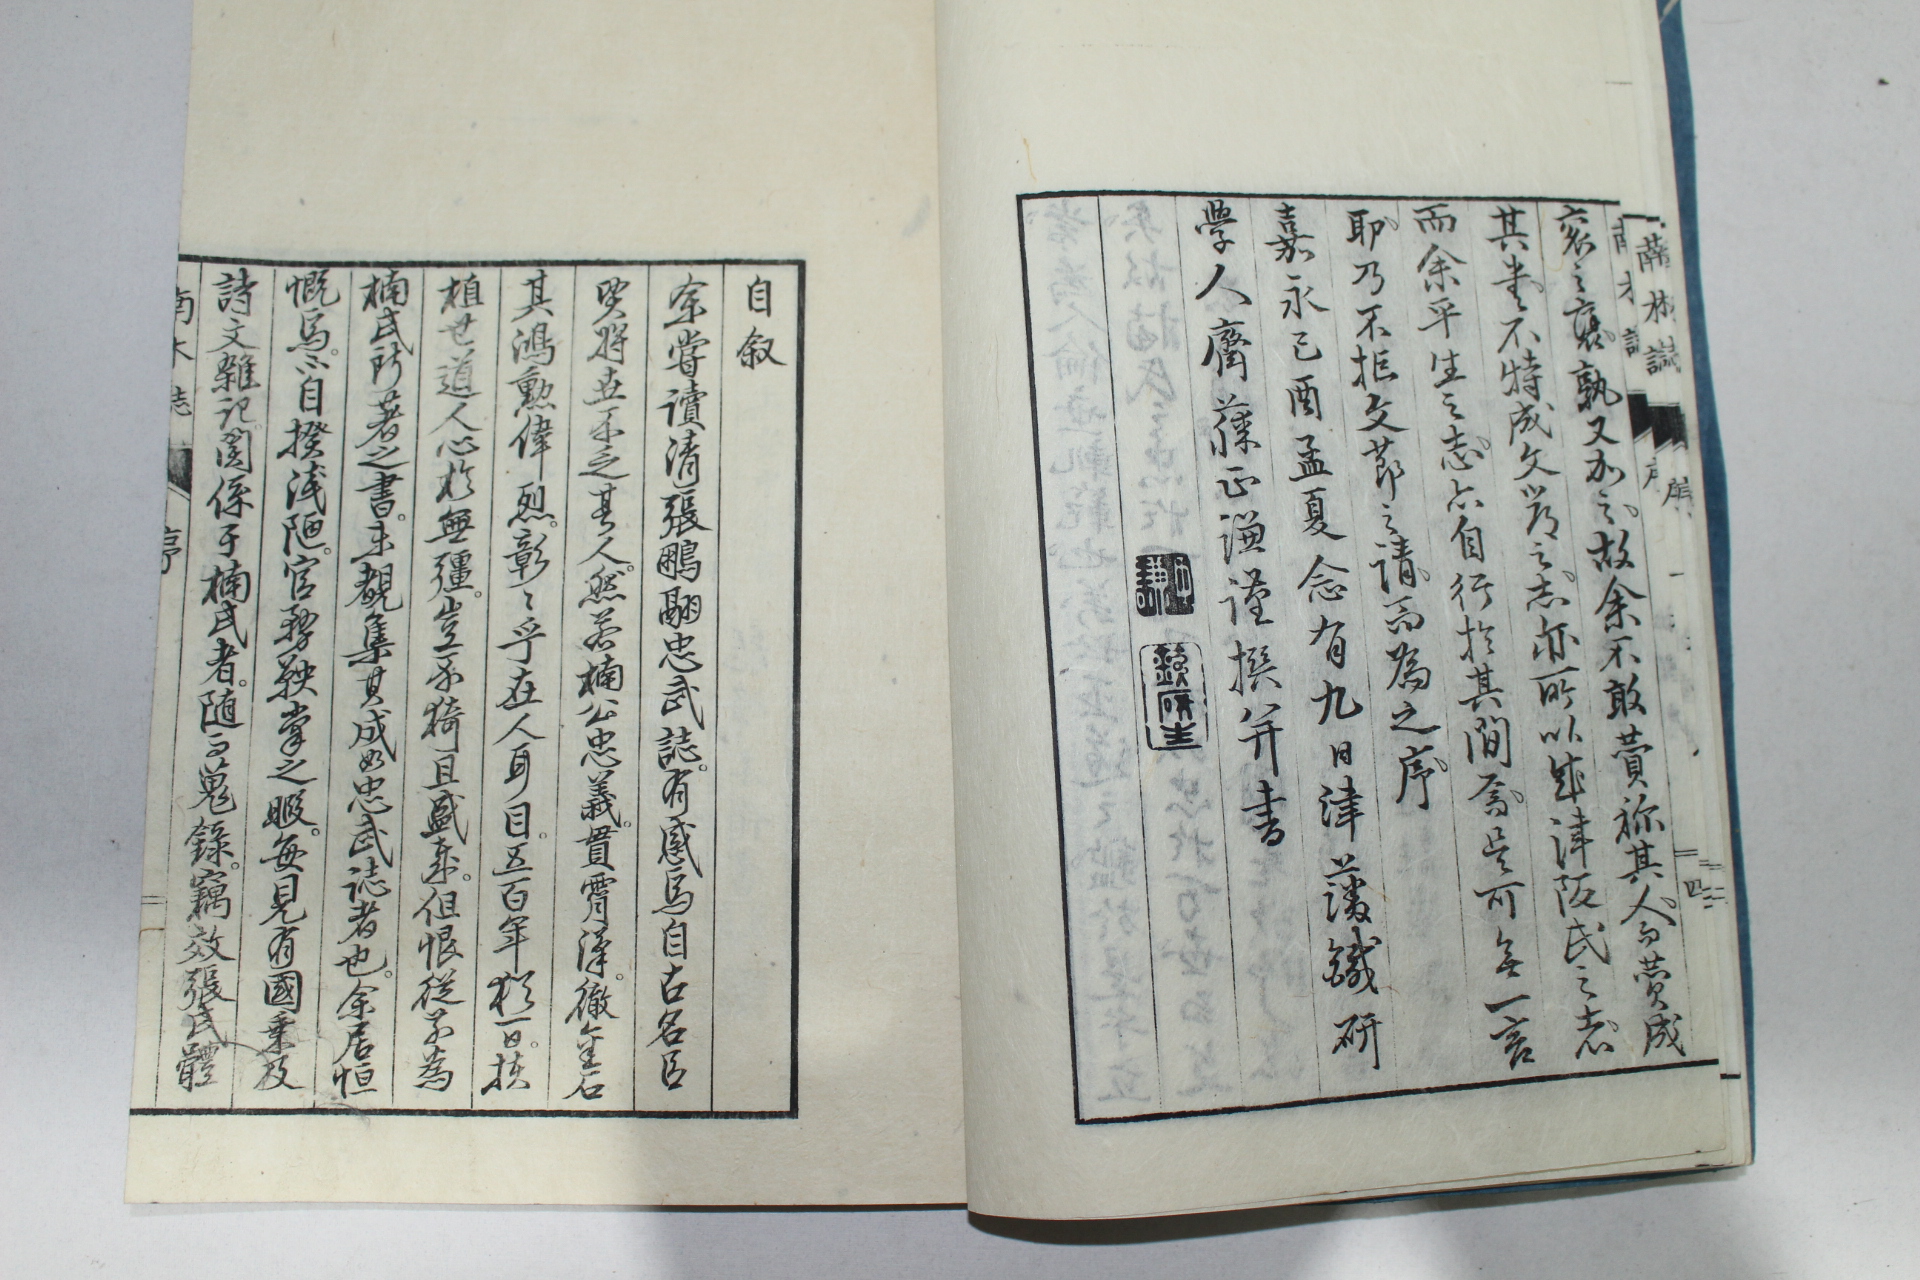 袞之褒孰又加之故余不敢賛称其人而賛成
其書不特成文岩之志亦所以成津阪氏之志
而余平生之志亦自行於其間焉是可無一言
耶乃不拒文節之請而為之序
嘉永己酉孟夏念有九日津藩鐵研
學人齋藤正謙謹撰并書
自叙
余嘗讀清張鵬翮忠武誌。有感焉自古名臣
賢將世不乏其人。然若楠公忠義。貫霄漢。徹金石
其鴻勲偉烈。彰々乎在人耳目。五百年猶一日。扶
植世道人心於無疆。豈不猗且盛乎。但恨從不為
楠氏所著之書。未覩集其成如忠武誌者也。余居恒
慨焉。不自揆淺陋。官務鞅掌之暇。毎見有國乗及
詩文雜記関係于楠氏者。随而蒐録。竊效張氏體
序
四